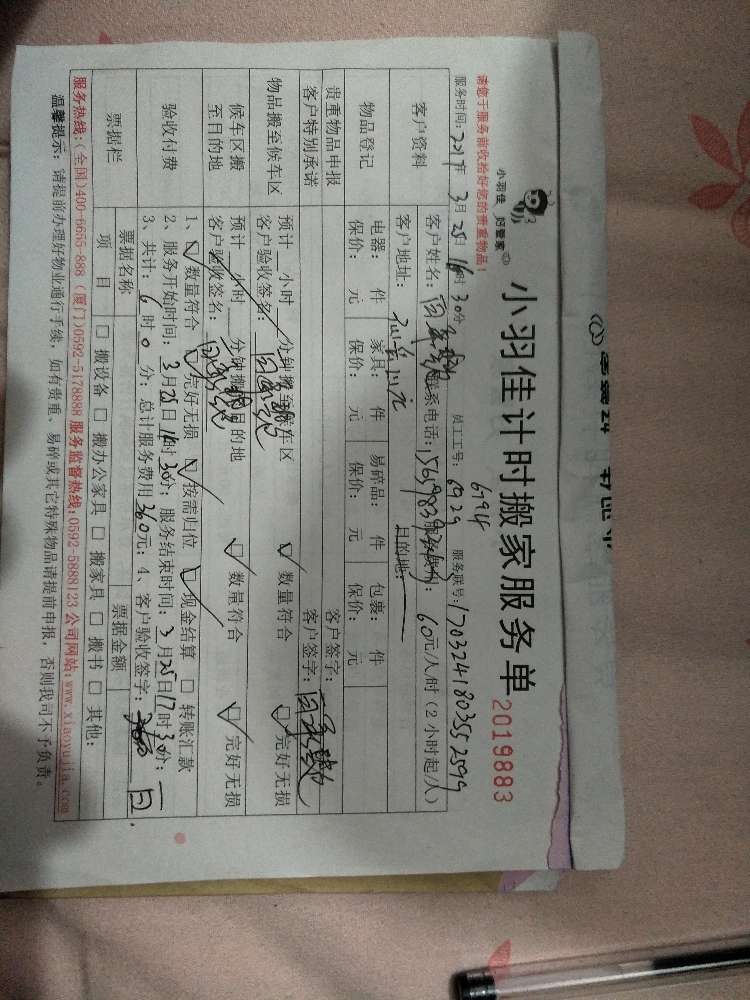 小羽佳 好管家
小羽佳计时搬家服务单 2019883
请您于服务前收拾好您的贵重物品！
服务时间：2017年 3月 25日 16时 30分 员工工号：6929 6794 服务账号：1703241803552599
客户资料
客户姓名： 联系电话： 60元/人/时（2小时起/人）
客户地址： 目的地：
物品登记
电器： 件 家具： 件 易碎品： 件 包裹： 件
保价： 元 保价： 元 保价： 元 保价： 元
贵重物品申报 客户签字：
客户特别承诺 客户签字：
物品搬至候车区
预计 小时 分钟搬至候车区 ☑ 数量符合 ☑ 完好无损
客户验收签名：
候车区搬至目的地
预计 小时 分钟搬至目的地 ☑ 数量符合 ☑ 完好无损
客户验收签名：
验收付费
1、☑ 数量符合 ☑ 完好无损 ☑ 按需归位 ☑ 现金结算 □ 转账汇款
2、服务开始时间：3月25日16时30分；服务结束时间：3月25日17时30分；
3、共计：6时0分；总计服务费用360元；4、客户验收签字：
票据栏
票据名称 票据金额
项目 □ 搬设备 □ 搬办公家具 □ 搬家具 □ 搬书 □ 其他：
服务热线：(全国)400-6655-888 (厦门)0592-5178888 服务监督热线：0592-5888123 公司网站：www.xiaoyujia.com
温馨提示：请提前办理好物业通行手续，如有贵重、易碎或其它特殊物品请提前申报，否则我司不予负责。